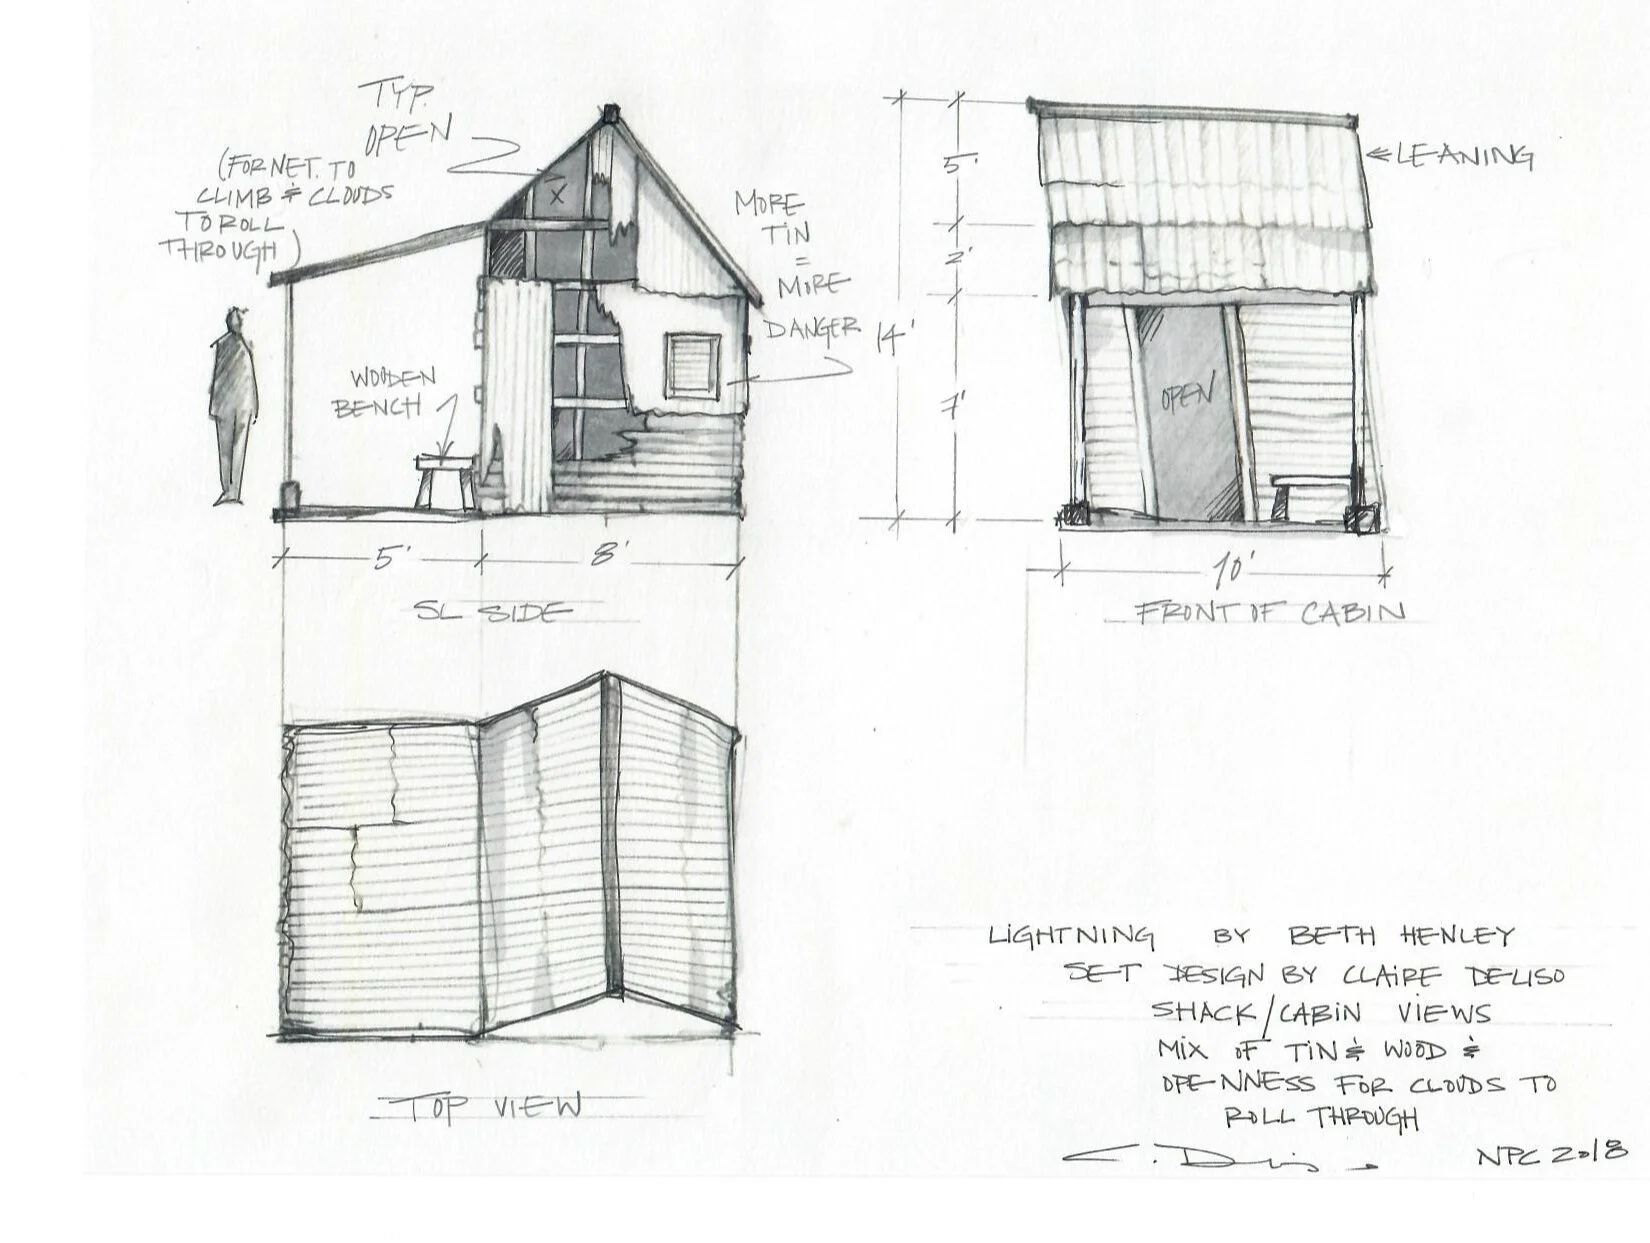 TYP.
OPEN
(FOR NET. TO
CLIMB & CLOUDS
TO ROLL
THROUGH)
X
MORE
TIN
=
MORE
DANGER
WOODEN
BENCH
5'
8'
SL SIDE
14'
5'
2'
7'
LEANING
OPEN
10'
FRONT OF CABIN
TOP VIEW
LIGHTNING BY BETH HENLEY
SET DESIGN BY CLAIRE DELISO
SHACK/CABIN VIEWS
MIX OF TIN & WOOD &
OPENNESS FOR CLOUDS TO
ROLL THROUGH
NPC 2018